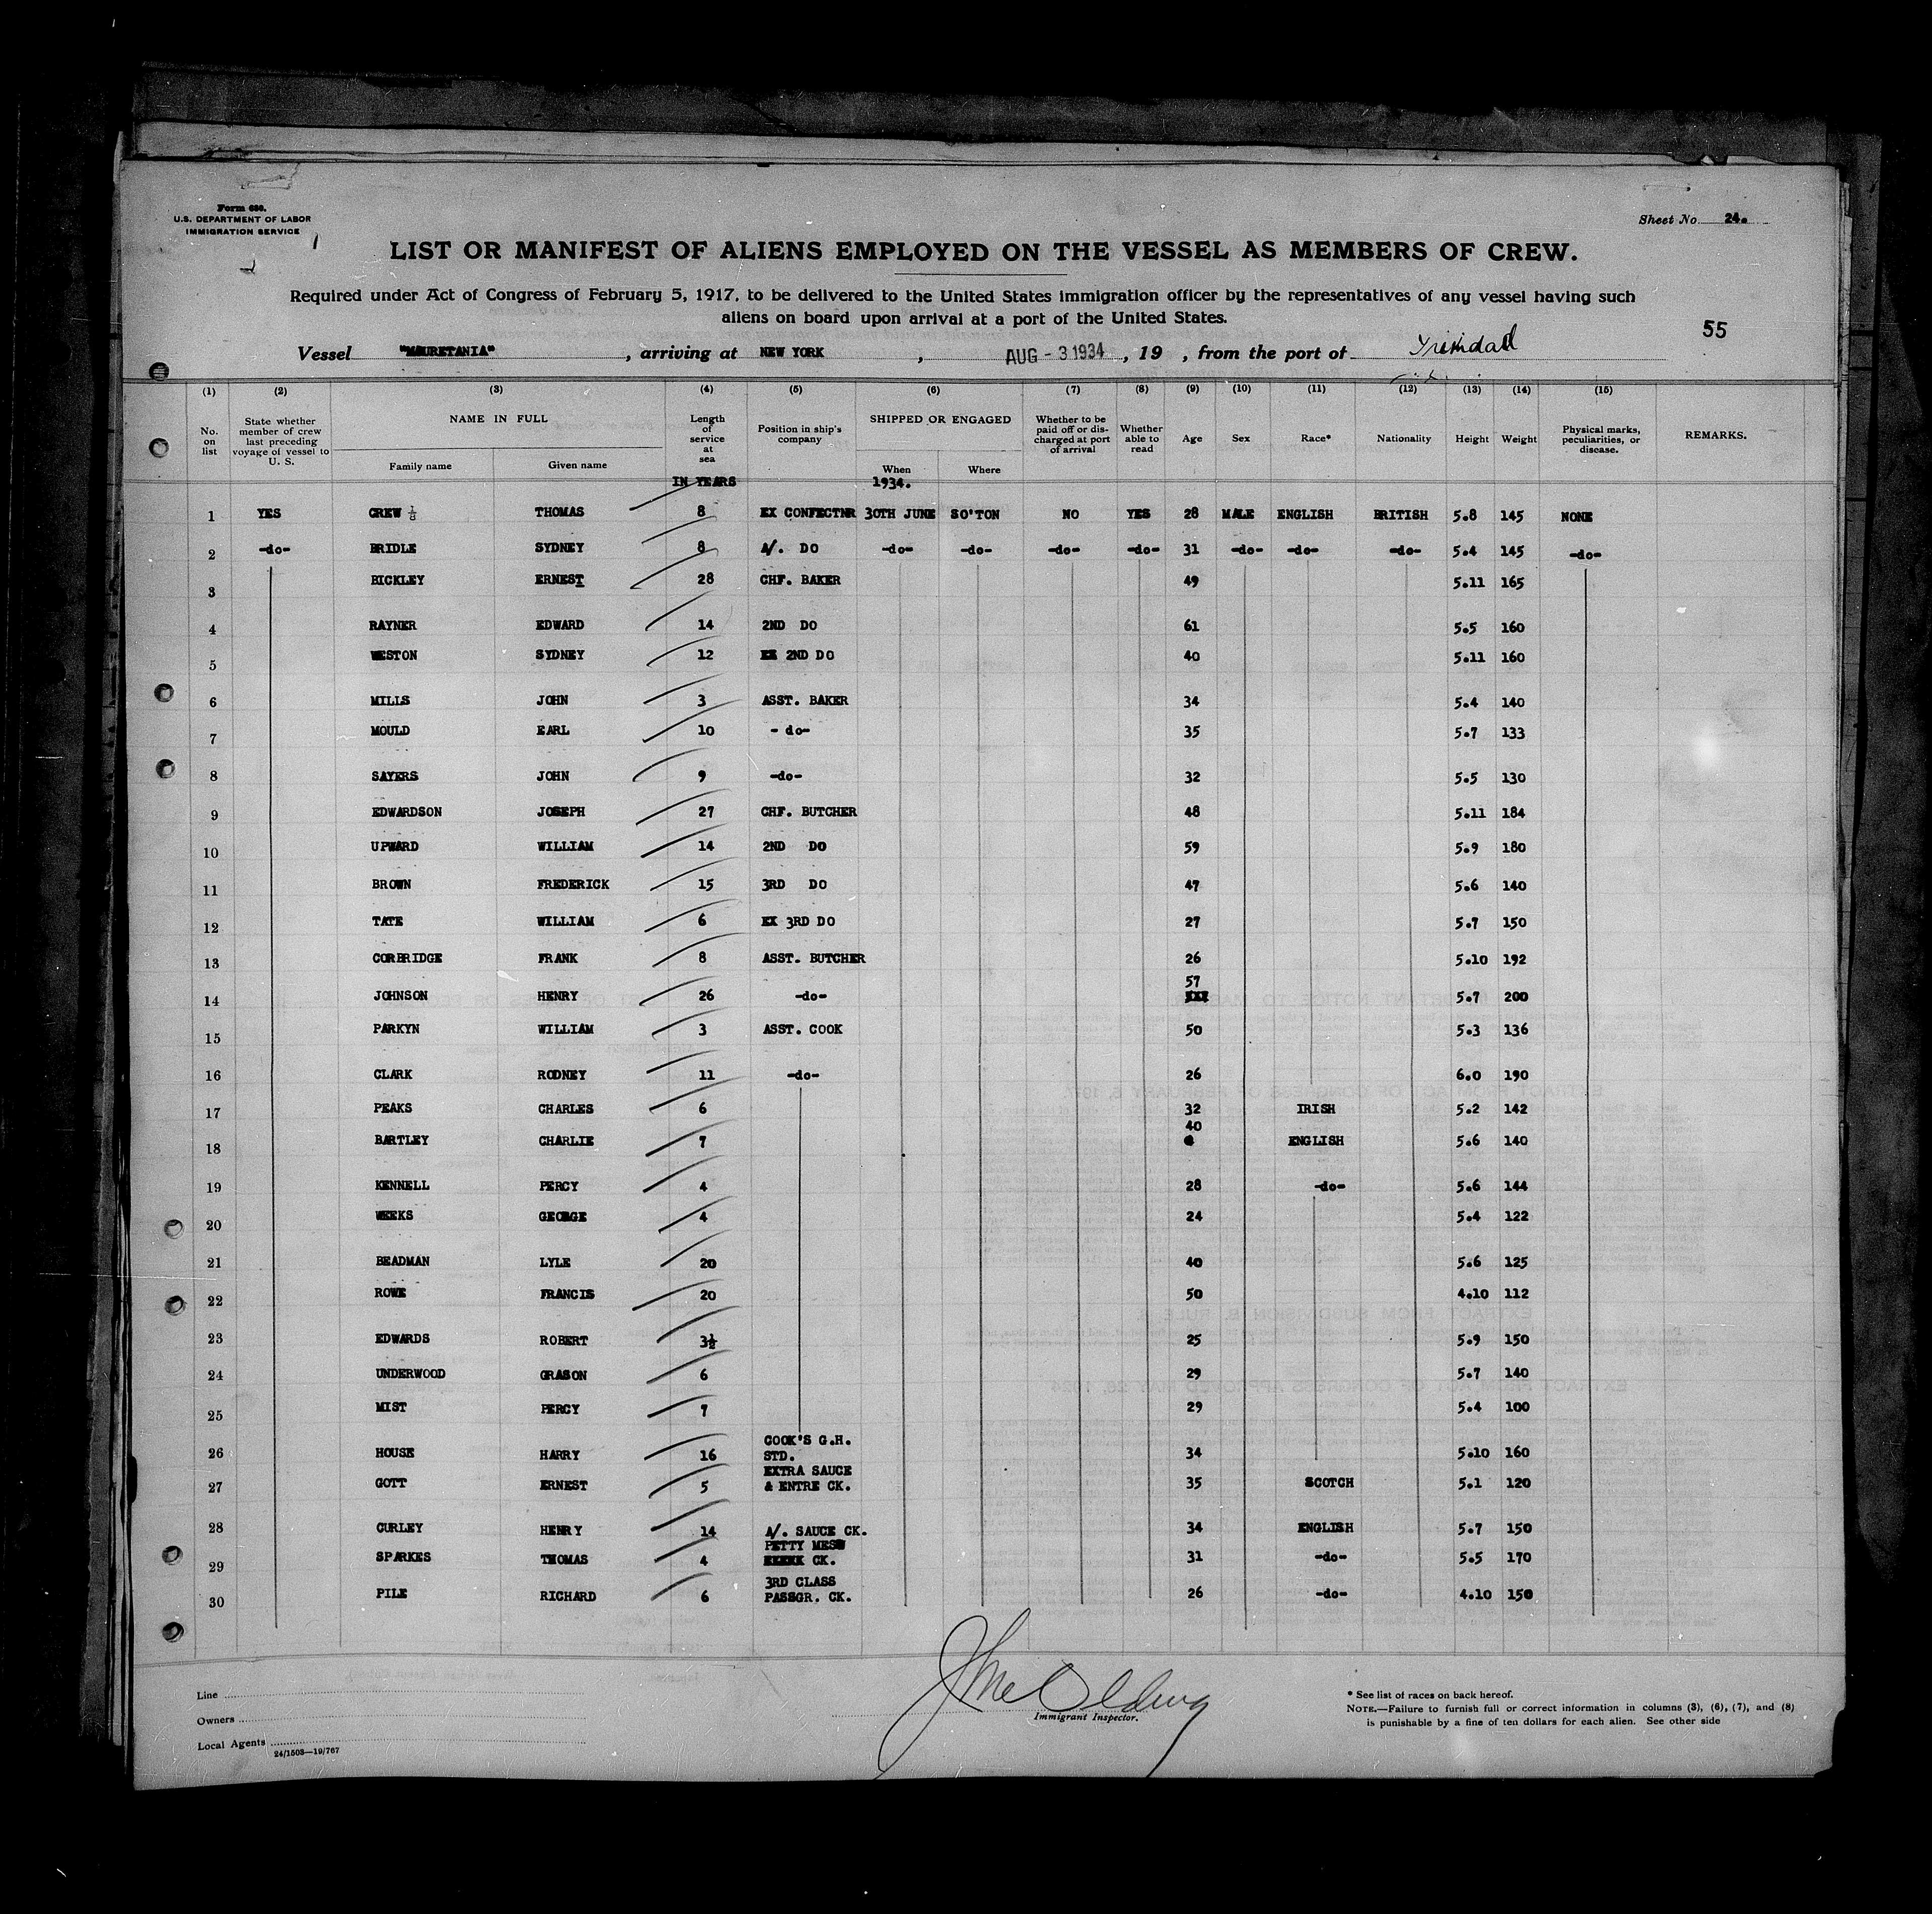 Form 686.
U.S. DEPARTMENT OF LABOR
IMMIGRATION SERVICE
Sheet No. 24.
LIST OR MANIFEST OF ALIENS EMPLOYED ON THE VESSEL AS MEMBERS OF CREW.
Required under Act of Congress of February 5, 1917, to be delivered to the United States immigration officer by the representatives of any vessel having such
aliens on board upon arrival at a port of the United States.
55
Vessel "MAURETANIA", arriving at NEW YORK, AUG - 3 1934, 19 , from the port of Trinidad
(1) (2) (3) (4) (5) (6) (7) (8) (9) (10) (11) (12) (13) (14) (15)
No. on list State whether member of crew last preceding voyage of vessel to U. S. NAME IN FULL Family name Given name Length of service at sea Position in ship's company SHIPPED OR ENGAGED When Where Whether to be paid off or discharged at port of arrival Whether able to read Age Sex Race* Nationality Height Weight Physical marks, peculiarities, or disease. REMARKS.
IN YEARS 1934.
1 YES CREW THOMAS 8 EX CONFECTNR 30TH JUNE SO'TON NO YES 28 MALE ENGLISH BRITISH 5.8 145 NONE
2 -do- BRIDLE SYDNEY 8 A/. DO -do- -do- -do- -do- 31 -do- -do- -do- 5.4 145 -do-
3 BICKLEY ERNEST 28 CHF. BAKER 49 5.11 165
4 RAYNER EDWARD 14 2ND DO 61 5.5 160
5 WESTON SYDNEY 12 EX 2ND DO 40 5.11 160
6 MILLS JOHN 3 ASST. BAKER 34 5.4 140
7 MOULD EARL 10 - do- 35 5.7 133
8 SAYERS JOHN 9 -do- 32 5.5 130
9 EDWARDSON JOSEPH 27 CHF. BUTCHER 48 5.11 184
10 UPWARD WILLIAM 14 2ND DO 59 5.9 180
11 BROWN FREDERICK 15 3RD DO 47 5.6 140
12 TATE WILLIAM 6 EX 3RD DO 27 5.7 150
13 CORBRIDGE FRANK 8 ASST. BUTCHER 26 5.10 192
14 JOHNSON HENRY 26 -do- 57 5.7 200
15 PARKYN WILLIAM 3 ASST. COOK 50 5.3 136
16 CLARK RODNEY 11 -do- 26 6.0 190
17 PEAKS CHARLES 6 32 IRISH 5.2 142
18 BARTLEY CHARLIE 7 40 ENGLISH 5.6 140
19 KENNELL PERCY 4 28 -do- 5.6 144
20 WEEKS GEORGE 4 24 5.4 122
21 BEADMAN LYLE 20 40 5.6 125
22 ROWE FRANCIS 20 50 4.10 112
23 EDWARDS ROBERT 3½ 25 5.9 150
24 UNDERWOOD GRASON 6 29 5.7 140
25 MIST PERCY 7 29 5.4 100
26 HOUSE HARRY 16 COOK'S G.H. STD. 34 5.10 160
27 GOTT ERNEST 5 EXTRA SAUCE & ENTRE CK. 35 SCOTCH 5.1 120
28 CURLEY HENRY 14 A/. SAUCE CK. 34 ENGLISH 5.7 150
29 SPARKES THOMAS 4 PETTY MESS CK. 31 -do- 5.5 170
30 PILE RICHARD 6 3RD CLASS PASSGR. CK. 26 -do- 4.10 150
Line
Owners
Local Agents
24/1503—19/767
Immigrant Inspector.
* See list of races on back hereof.
NOTE.—Failure to furnish full or correct information in columns (3), (6), (7), and (8)
is punishable by a fine of ten dollars for each alien. See other side